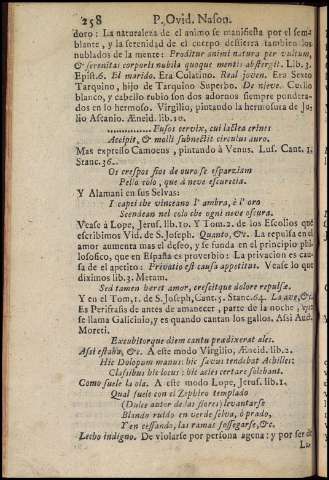 258 P. Ovid. Nason.
doro: La naturaleza de el animo se manifiesta por el sem-
blante, y la serenidad de el cuerpo destierra tambien los
nublados de la mente: Proditur animi natura per vultum,
& serenitas corporis nubila quoque mentis abstergit. Lib. 3.
Epist. 6. El marido. Era Colatino. Real joven. Era Sexto
Tarquino, hijo de Tarquino Superbo. De nieve. Cuello
blanco, y cabello rubio son dos adornos siempre pondera-
dos en lo hermoso. Virgilio, pintando la hermosura de Ju-
lio Ascanio. Æneid. lib. 10.
............... Fusos cervix, cui lactea crines
Accipit, & molli subnectit circulus auro.
Mas expresso Camoens, pintando à Venus. Lus. Cant. 2.
Stanc. 36.
Os crespos fios de ouro se esparziam
Pello colo, que á neve escurecia.
Y Alamani en sus Selvas:
I capei che vinceano l' ambra, è l' oro
Scendean nel colo che ogni neve oscura.
Vease à Lope, Jerus. lib. 10. Y Tom. 2. de los Escolios que
escribimos Vid. de S. Joseph. Quanto, &c. La repulsa en el
amor aumenta mas el deseo, y se funda en el principio phi-
losofico, que en España es proverbio: La privacion es cau-
sa de el apetito: Privatio est causa appetitus. Vease lo que
diximos lib. 3. Metam.
Sed tamen hæret amor, crescitque dolore repulsæ.
Y en el Tom. 1. de S. Joseph, Cant. 5. Stanc. 64. La ave, &c.
Es Perifrasis de antes de amanecer, parte de la noche, que
se llama Galicinio, y es quando cantan los gallos. Assi Auct.
Moreti.
Excubitorque diem cantu prædixerat ales.
Assi estaba, &c. A este modo Virgilio, Æneid. lib. 2.
Hic Dolopum manus: hic sævus tendebat Achilles:
Classibus hic locus: hic acies certare solebant.
Como suele la ola. A este modo Lope, Jerus. lib. 1.
Qual suele con el Zephiro templado
(Dulce autor de las flores) levantarse
Blando ruido en verde selva, ó prado,
Y en cessando, las ramas sossegarse, &c.
Lecho indigno. De violarse por persona agena: y por ser de